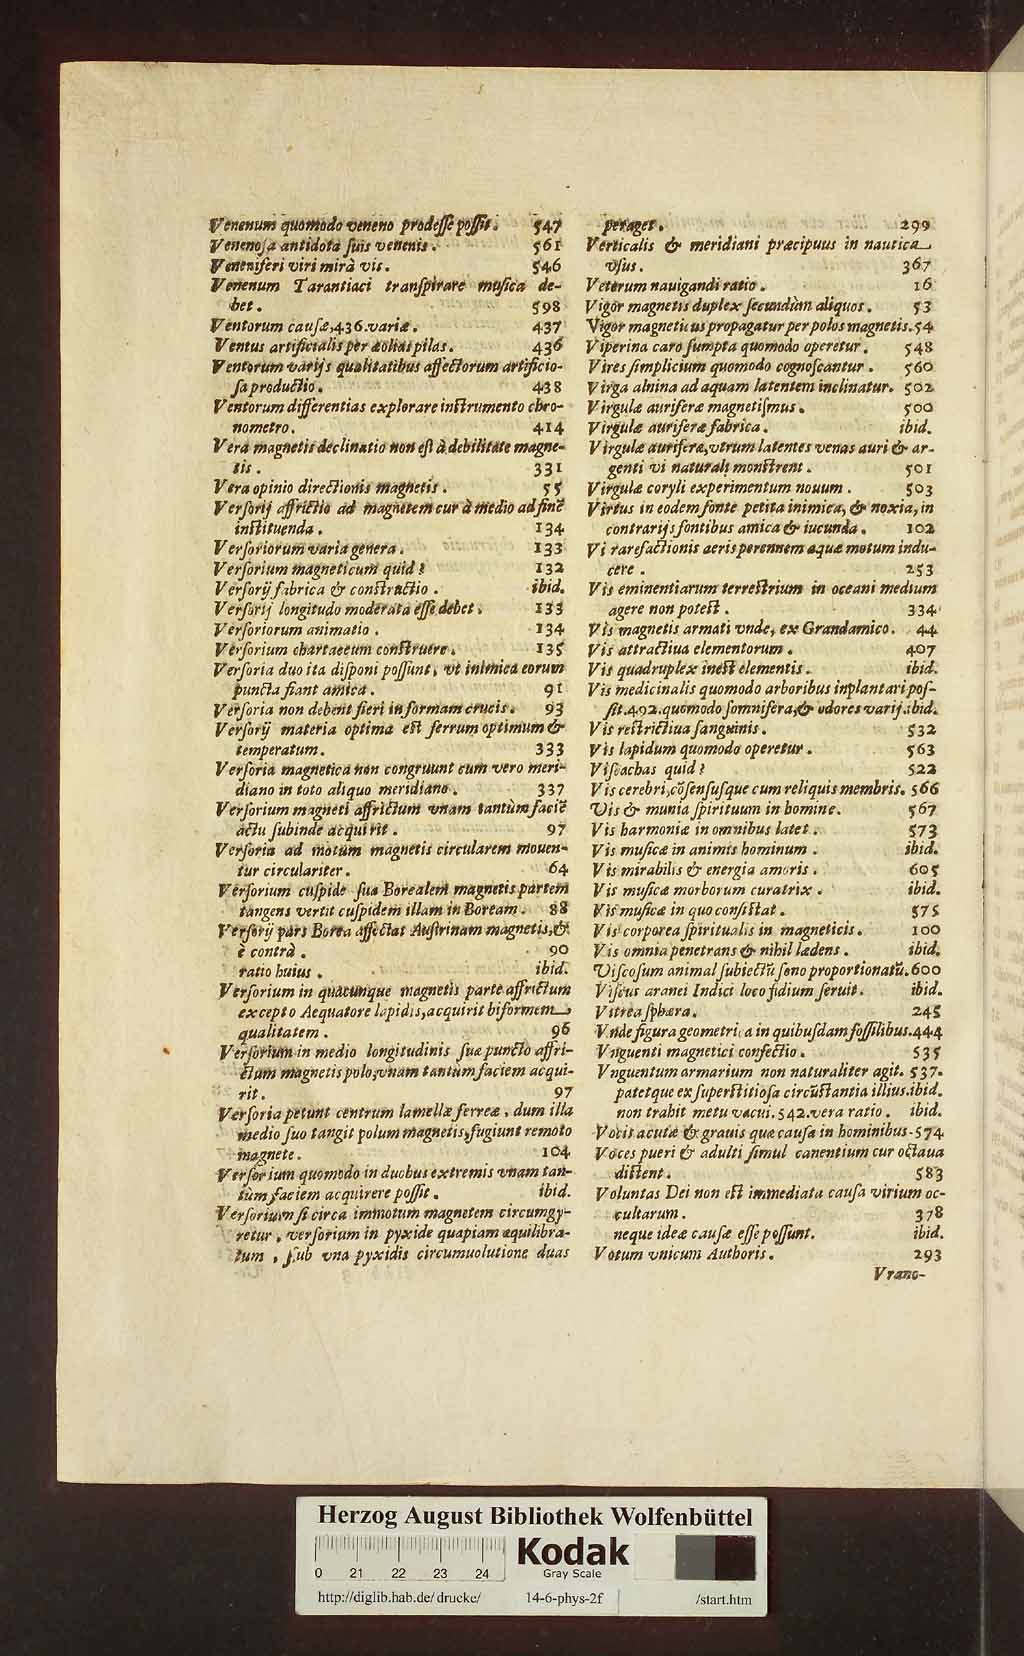 Venenum quomodo veneno prodeſſe poſſit. 547
Venenoſa antidota ſuis venenis. 561
Veneniferi viri mirà vis. 546
Venenum Tarantiaci tranſpirare muſica de-
bet. 598
Ventorum cauſæ, 436. variæ. 437
Ventus artificialis per æolias pilas. 436
Ventorum varijs qualitatibus affectorum artificio-
ſa productio. 438
Ventorum differentias explorare inſtrumento chro-
nometro. 414
Vera magnetis declinatio non eſt à debilitate magne-
tis. 331
Vera opinio directionis magnetis. 55
Verſorij affrictio ad magnetem cur à medio ad finẽ
inſtituenda. 134
Verſoriorum varia genera. 133
Verſorium magneticum quid? 132
Verſorij fabrica & conſtructio. ibid.
Verſorij longitudo moderata eſſe debet. 133
Verſoriorum animatio. 134
Verſorium chartaceum conſtruere. 135
Verſoria duo ita diſponi poſſunt, vt inimica eorum
puncta fiant amica. 91
Verſoria non debent fieri in formam crucis. 93
Verſorij materia optima eſt ferrum optimum &
temperatum. 333
Verſoria magnetica non congruunt cum vero meri-
diano in toto aliquo meridiano. 337
Verſorium magneti affrictum vnam tantùm faciẽ
actu ſubinde acquirit. 97
Verſoria ad motum magnetis circularem mouen-
tur circulariter. 64
Verſorium cuſpide ſua Borealem magnetis partem
tangens vertit cuſpidem illam in Boream. 88
Verſorij pars Borea affectat Auſtrinam magnetis, &
è contrà. 90
ratio huius. ibid.
Verſorium in quacunque magnetis parte affrictum
excepto Aequatore lapidis, acquirit biformem
qualitatem. 96
Verſorium in medio longitudinis ſuæ puncto affri-
ctum magnetis polo, vnam tantùm faciem acqui-
rit. 97
Verſoria petunt centrum lamellæ ferreæ, dum illa
medio ſuo tangit polum magnetis, fugiunt remoto
magnete. 104
Verſorium quomodo in duobus extremis vnam tan-
tùm faciem acquirere poſſit. ibid.
Verſorium ſi circa immotum magnetem circumgy-
retur, verſorium in pyxide quapiam æquilibra-
tum, ſub vna pyxidis circumuolutione duas
peraget. 299
Verticalis & meridiani præcipuus in nautica
vſus. 367
Veterum nauigandi ratio. 16
Vigor magnetis duplex ſecundùm aliquos. 53
Vigor magneticus propagatur per polos magnetis. 54
Viperina caro ſumpta quomodo operetur. 548
Vires ſimplicium quomodo cognoſcantur. 560
Virga alnina ad aquam latentem inclinatur. 502
Virgulæ auriferæ magnetiſmus. 500
Virgulæ auriferæ fabrica. ibid.
Virgulæ auriferæ, vtrum latentes venas auri & ar-
genti vi naturali monſtrent. 501
Virgulæ coryli experimentum nouum. 503
Virtus in eodem fonte petita inimica, & noxia, in
contrarijs fontibus amica & iucunda. 102
Vi rarefactionis aeris perennem aquæ motum indu-
cere. 253
Vis eminentiarum terreſtrium in oceani medium
agere non poteſt. 334
Vis magnetis armati vnde, ex Grandamico. 44
Vis attractiua elementorum. 407
Vis quadruplex ineſt elementis. ibid.
Vis medicinalis quomodo arboribus inplantari poſ-
ſit. 492. quomodo ſomnifera, & odores varij. ibid.
Vis reſtrictiua ſanguinis. 532
Vis lapidum quomodo operetur. 563
Viſcachas quid? 522
Vis cerebri, cõſenſuſque cum reliquis membris. 566
Vis & munia ſpirituum in homine. 567
Vis harmoniæ in omnibus latet. 573
Vis muſicæ in animis hominum. ibid.
Vis mirabilis & energia amoris. 605
Vis muſicæ morborum curatrix. ibid.
Vis muſicæ in quo conſiſtat. 575
Vis corporea ſpiritualis in magneticis. 100
Vis omnia penetrans & nihil lædens. ibid.
Viſcoſum animal ſubiectũ ſono proportionatũ. 600
Viſcus aranei Indici loco fidium ſeruit. ibid.
Vitrea ſphæra. 245
Vnde figura geometrica in quibuſdam foſſilibus. 444
Vnguenti magnetici confectio. 535
Vnguentum armarium non naturaliter agit. 537.
patetque ex ſuperſtitioſa circũſtantia illius. ibid.
non trahit metu vacui. 542. vera ratio. ibid.
Vocis acutæ & grauis quæ cauſa in hominibus. 574
Voces pueri & adulti ſimul canentium cur octaua
diſtent. 583
Voluntas Dei non eſt immediata cauſa virium oc-
cultarum. 378
neque ideæ cauſæ eſſe poſſunt. ibid.
Votum vnicum Authoris. 293
Vrano-
Herzog August Bibliothek Wolfenbüttel
Kodak
Gray Scale
0 21 22 23 24
http://diglib.hab.de/drucke/ 14-6-phys-2f /start.htm